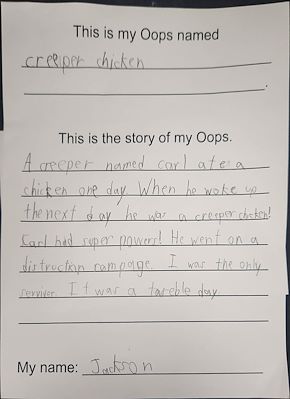 This is my Oops named
creeper chicken
.
This is the story of my Oops.
A creeper named carl ate a
chicken one day. When he woke up
the next day he was a creeper chicken!
Carl had super powers! He went on a
distruction rampage. I was the only
serviver. It was a tareble day.
My name: Jackson